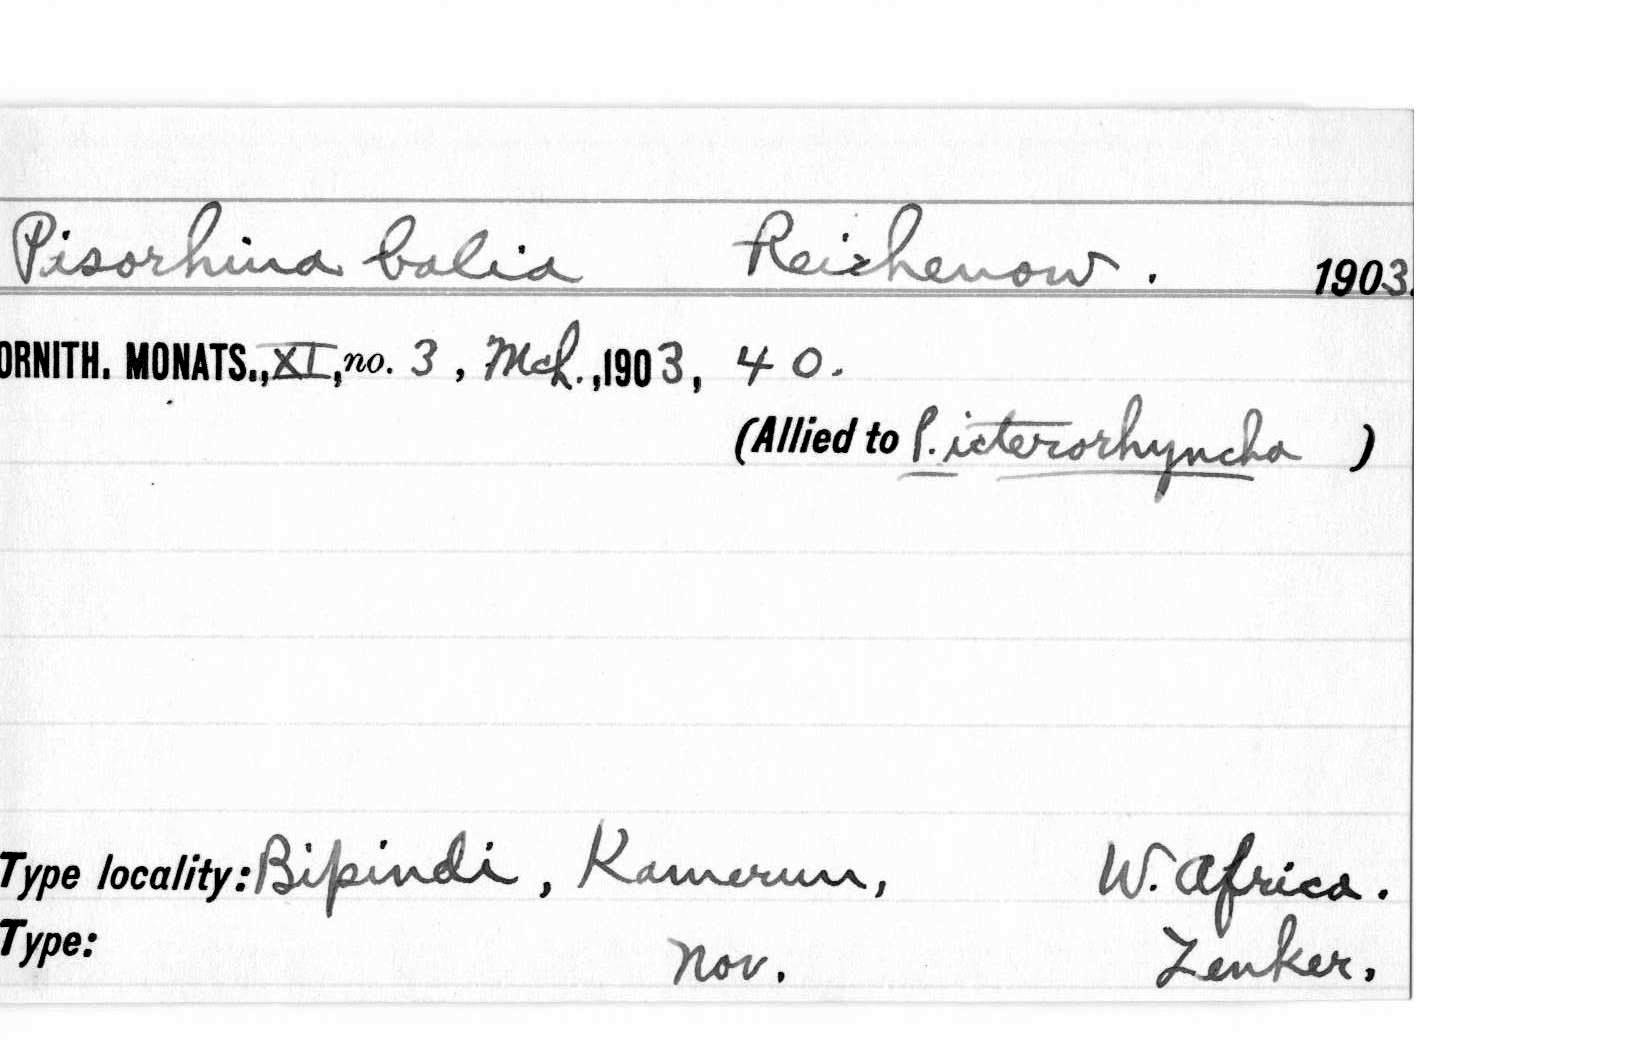 Pisorhina balia Reichenow. 1903.
ORNITH. MONATS., XI, no. 3, Mch., 1903, 40.
(Allied to P. icterorhyncha )
Type locality: Bipindi, Kamerun, W. Africa.
Type: Nov. Zenker.